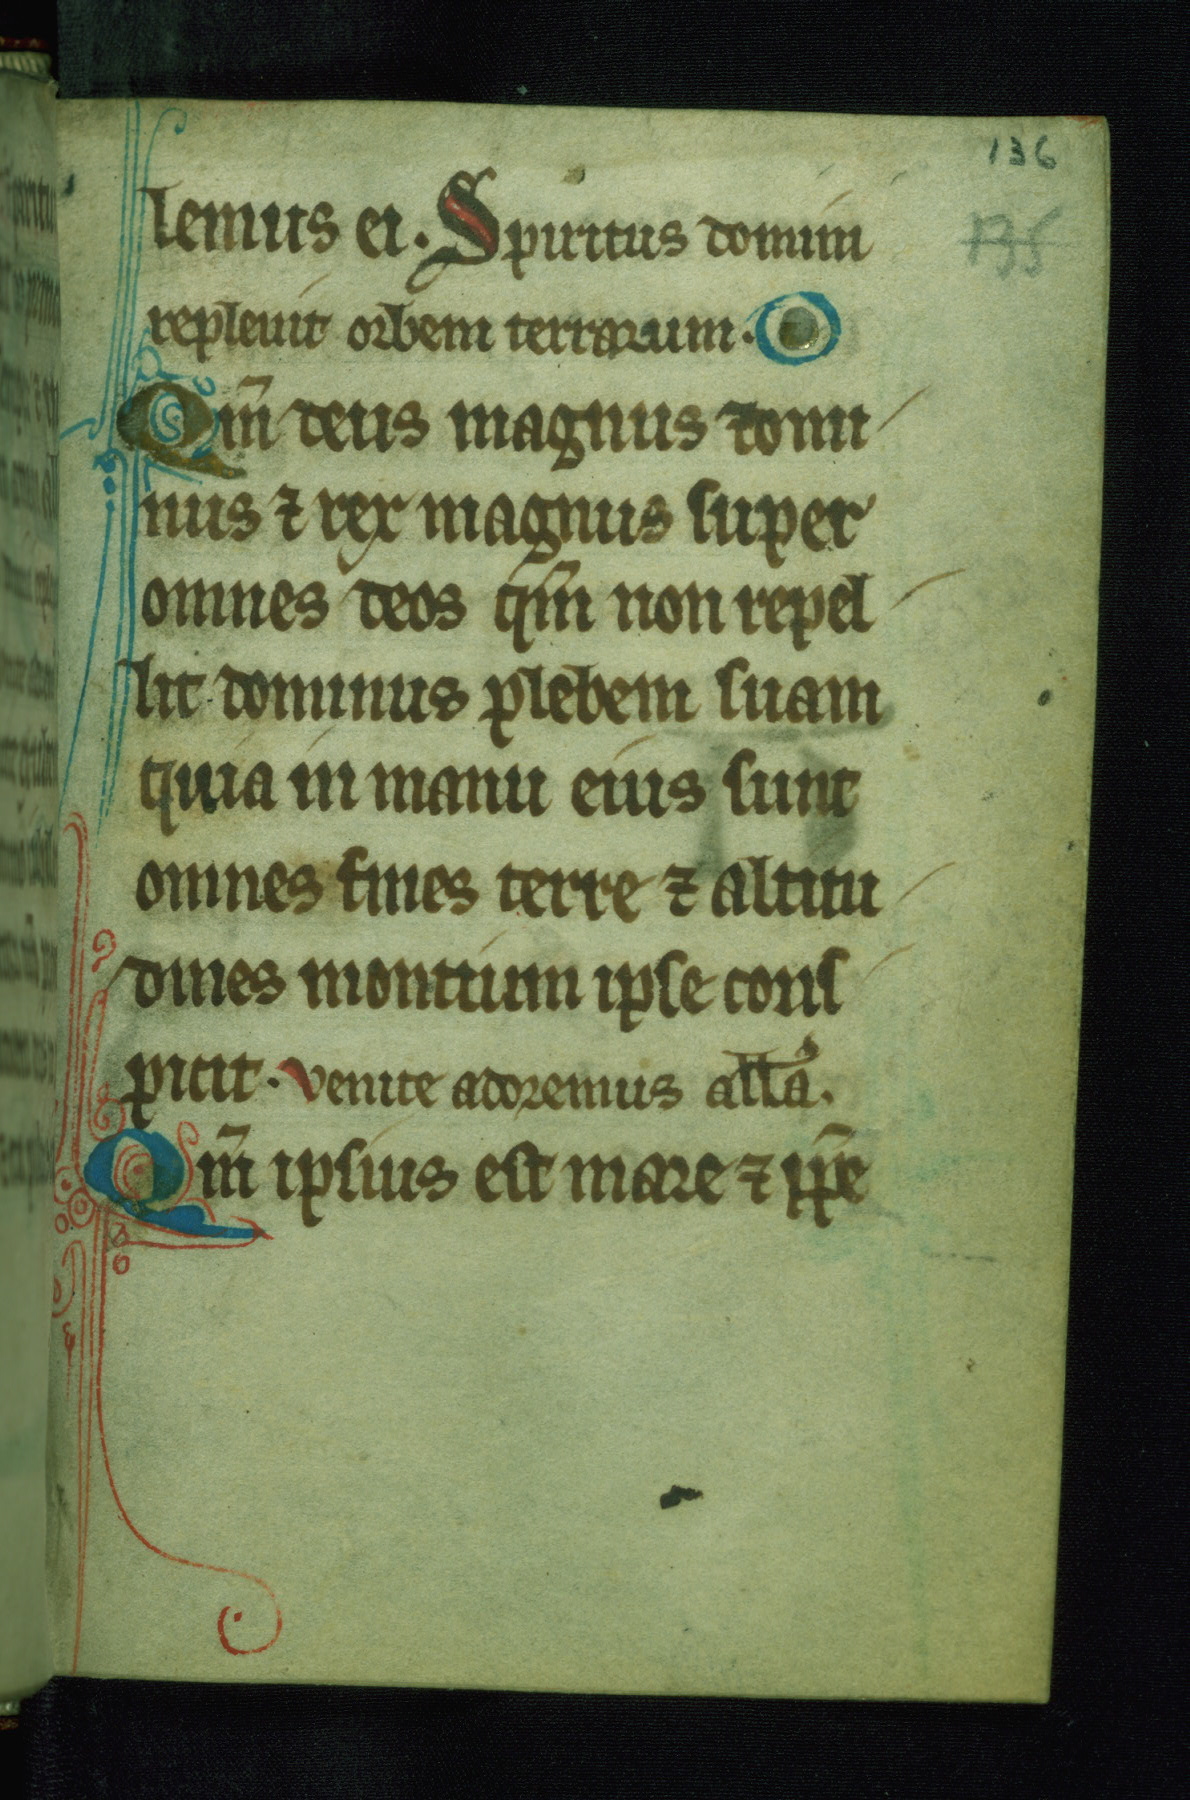 136
135
lemus ei. Spiritus domini
repleuit orbem terrarum.
Qm̄ deus magnus domi
nus ⁊ rex magnus super
omnes deos qm̄ non repel
lit dominus plebem suam
quia in manu eius sunt
omnes fines terre ⁊ altitu
dines montium ipse cons
picit. venite adoremus alla.
Qm̄ ipsius est mare ⁊ ip̄e